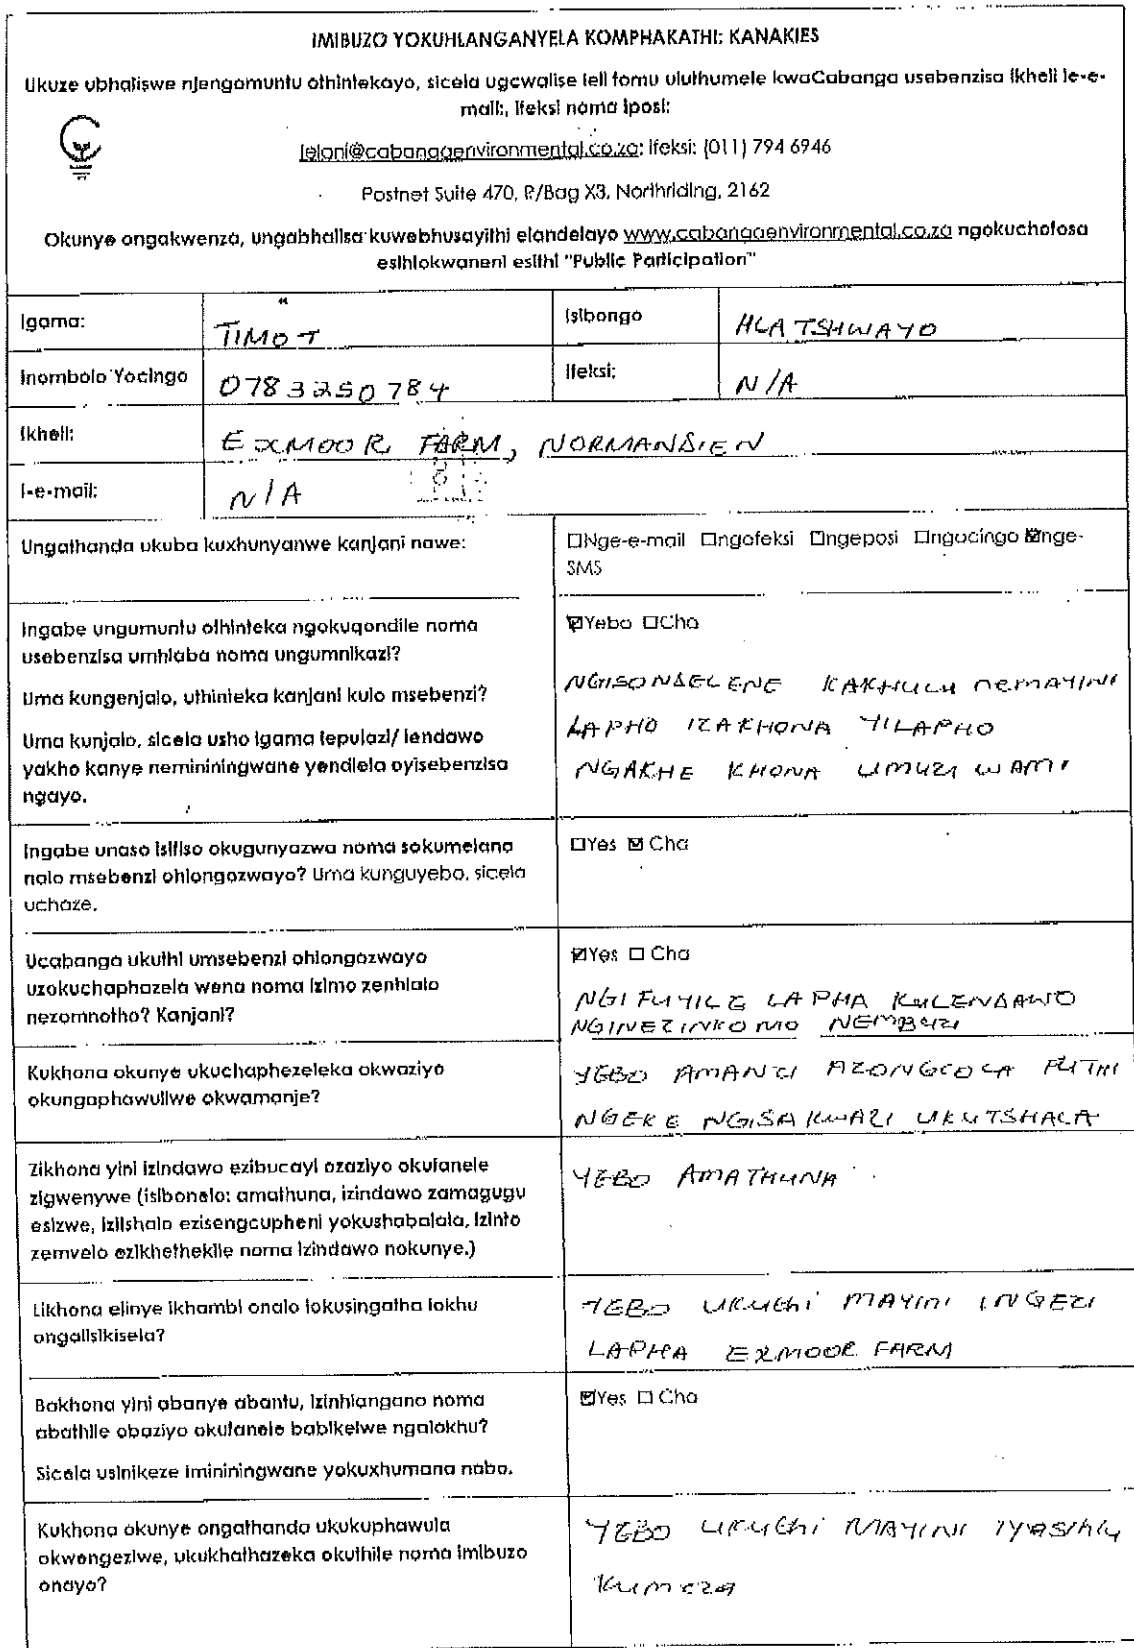 IMIBUZO YOKUHLANGANYELA KOMPHAKATHI: KANAKIES
Ukuze ubhaliswe njengomuntu othintekayo, sicela ugcwalise leli fomu uluthumele kwaCabanga usebenzisa ikheli le-e-
mail:, ifeksi noma iposi:
lelani@cabangaenvironmental.co.za; ifeksi: (011) 794 6946
Postnet Suite 470, P/Bag X3, Northriding, 2162
Okunye ongakwenza, ungabhalisa kuwebhusayithi elandelayo www.cabangaenvironmental.co.za ngokuchofosa
esihlokwaneni esithi "Public Participation"
Igama: TIMOT Isibongo HLATSHWAYO
Inombolo Yocingo 0783250784 Ifeksi: N/A
Ikheli: EXMOOR FARM, NORMANDIEN
I-e-mail: N/A
Ungathanda ukuba kuxhunyanwe kanjani nawe: ☐Nge-e-mail ☐ngofeksi ☐ngeposi ☐ngocingo ☒nge-
SMS
Ingabe ungumuntu othinteka ngokuqondile noma
usebenzisa umhlaba noma ungumnikazi?
Uma kungenjalo, uthinteka kanjani kulo msebenzi?
Uma kunjalo, sicela usho igama lepulazi/ lendawo
yakho kanye nemininingwane yendlela oyisebenzisa
ngayo.
☑Yebo ☐Cha
NGISONDELENE KAKHULU NEMAYINI
LAPHO IZAKHONA YILAPHO
NGAKHE KHONA UMUZI WAMI
Ingabe unaso isifiso okugunyazwa noma sokumelana
nalo msebenzi ohlongozwayo? Uma kunguyebo, sicela
uchaze.
☐Yes ☒ Cha
Ucabanga ukuthi umsebenzi ohlongozwayo
uzokuchaphazela wena noma izimo zenhlalo
nezomnotho? Kanjani?
☑Yes ☐ Cha
NGIFUYILE LAPHA KULENDAWO
NGINEZINKOMO NEMBUZI
Kukhona okunye ukuchaphezeleka okwaziyo
okungaphawuliwe okwamanje?
YEBO AMANZI AZONGCOLA FUTHI
NGEKE NGISAKWAZI UKUTSHALA
Zikhona yini izindawo ezibucayi ozaziyo okufanele
zigwenywe (isibonelo: amathuna, izindawo zamagugu
esizwe, izitshalo ezisengcupheni yokushabalala, izinto
zemvelo ezikhethekile noma izindawo nokunye.)
YEBO AMATHUNA
Likhona elinye ikhambi onalo lokusingatha lokhu
ongalisikisela?
YEBO UKUthi MAYINI INGEZI
LAPHA EXMOOR FARM
Bakhona yini abanye abantu, izinhlangano noma
abathile obaziyo okufanele babikelwe ngalokhu?
Sicela usinikeze imininingwane yokuxhumana nabo.
☑Yes ☐ Cha
Kukhona okunye ongathanda ukukuphawula
okwengeziwe, ukukhathazeka okuthile noma imibuzo
onayo?
YEBO UKUthi MAYINI